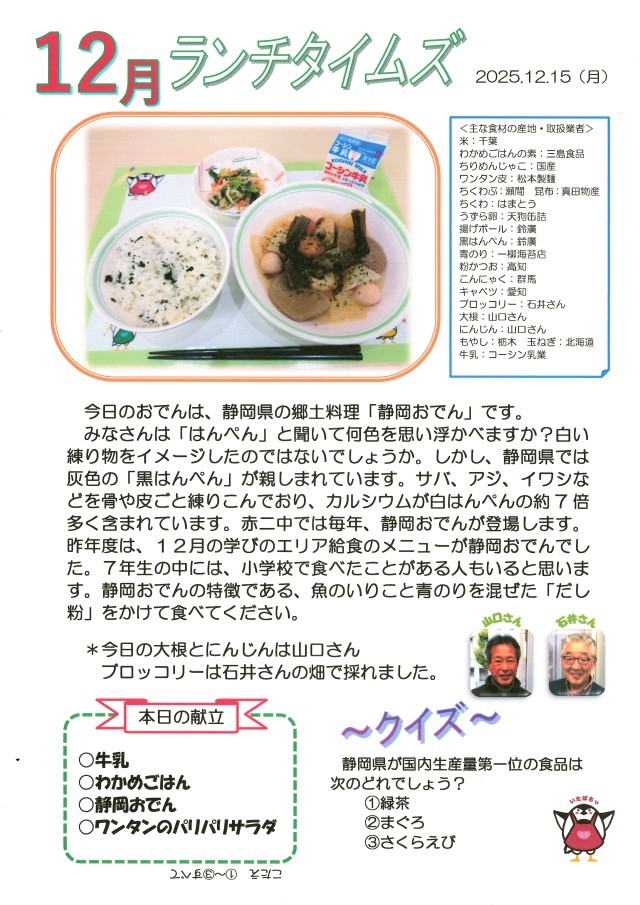 12月 ランチタイムズ 2025.12.15（月）
コーシン牛乳
KOSHIN MILK
コーシン牛乳
＜主な食材の産地・取扱業者＞
米：千葉
わかめごはんの素：三島食品
ちりめんじゃこ：国産
ワンタン皮：松本製麺
ちくわぶ：瀬間　昆布：真田物産
ちくわ：はまとう
うずら卵：天狗缶詰
揚げボール：鈴廣
黒はんぺん：鈴廣
青のり：一柳海苔店
粉かつお：高知
こんにゃく：群馬
キャベツ：愛知
ブロッコリー：石井さん
大根：山口さん
にんじん：山口さん
もやし：栃木　玉ねぎ：北海道
牛乳：コーシン乳業
今日のおでんは、静岡県の郷土料理「静岡おでん」です。
みなさんは「はんぺん」と聞いて何色を思い浮かべますか？白い
練り物をイメージしたのではないでしょうか。しかし、静岡県では
灰色の「黒はんぺん」が親しまれています。サバ、アジ、イワシな
どを骨や皮ごと練りこんでおり、カルシウムが白はんぺんの約７倍
多く含まれています。赤二中では毎年、静岡おでんが登場します。
昨年度は、１２月の学びのエリア給食のメニューが静岡おでんでし
た。７年生の中には、小学校で食べたことがある人もいると思いま
す。静岡おでんの特徴である、魚のいりこと青のりを混ぜた「だし
粉」をかけて食べてください。
＊今日の大根とにんじんは山口さん
ブロッコリーは石井さんの畑で採れました。
山口さん
石井さん
本日の献立
○牛乳
○わかめごはん
○静岡おでん
○ワンタンのパリパリサラダ
～クイズ～
静岡県が国内生産量第一位の食品は
次のどれでしょう？
①緑茶
②まぐろ
③さくらえび
いたばちぃ
こたえ　①～③すべて